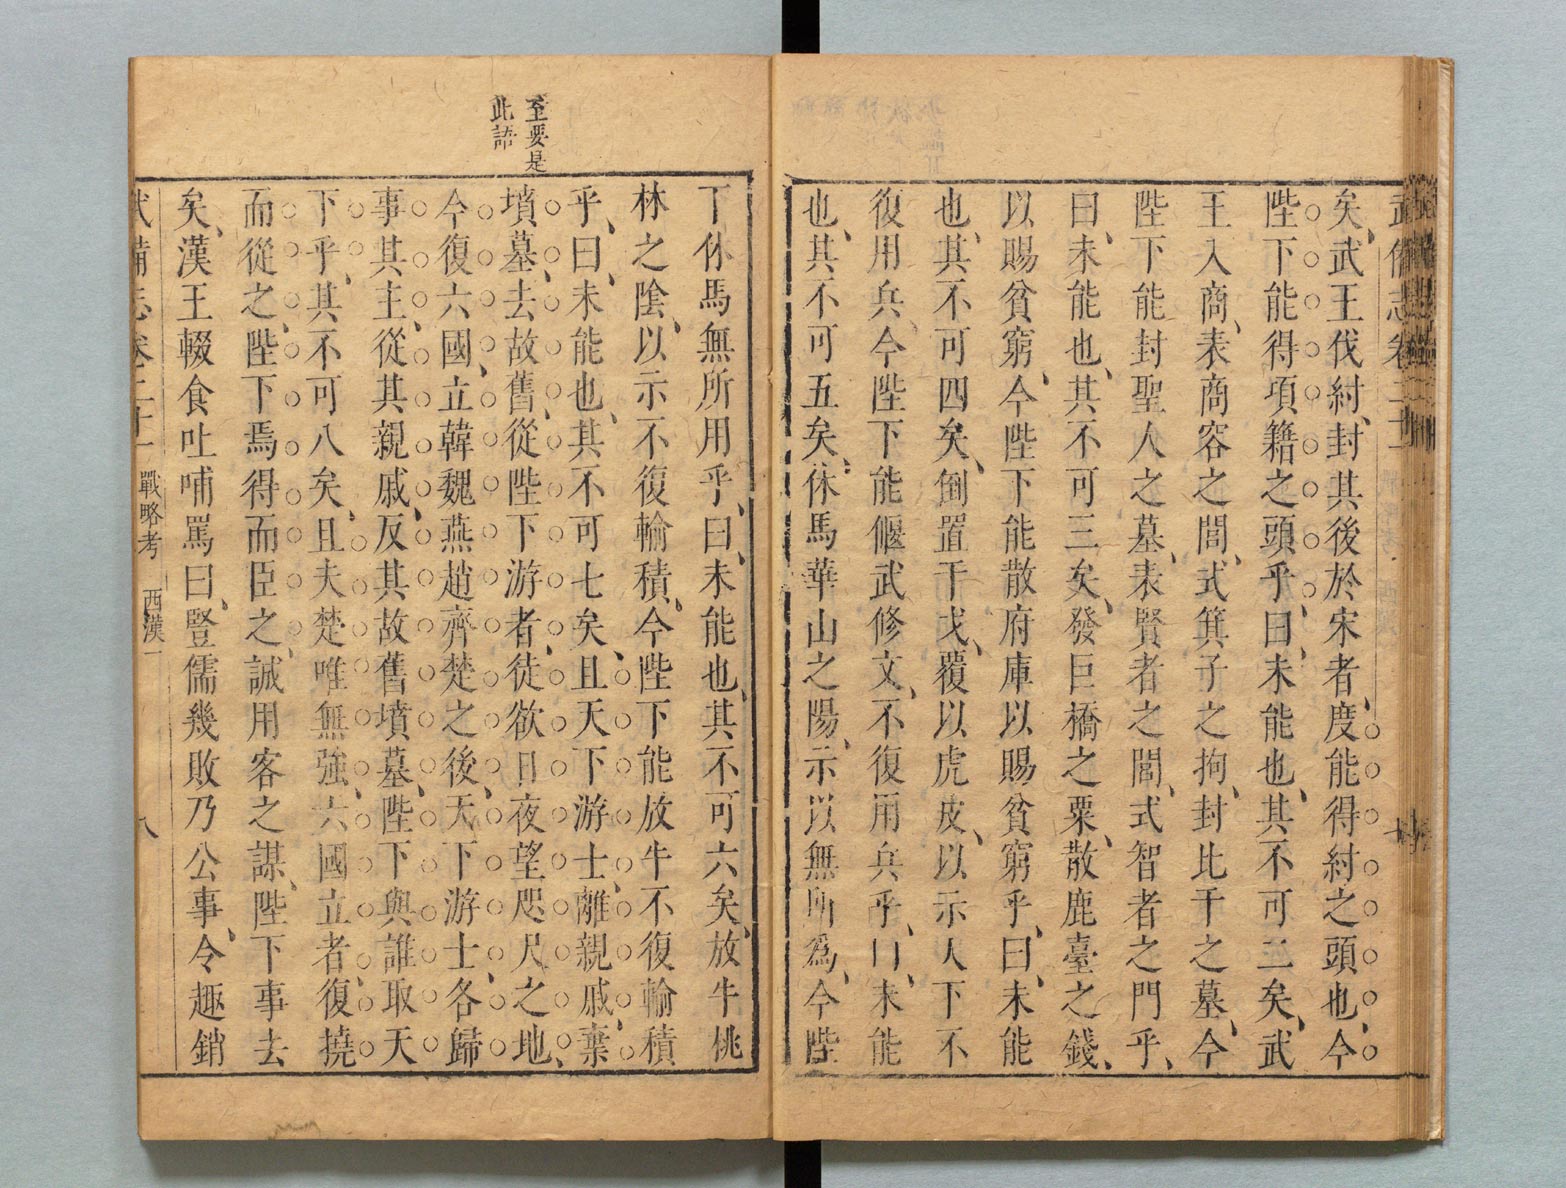 武備志卷二十一
矣、武王伐紂、封其後於宋者、度能得紂之頭也、今
陛下能得項籍之頭乎、曰、未能也、其不可二矣、武
王入商、表商容之閭、式箕子之拘、封比干之墓、今
陛下能封聖人之墓、表賢者之閭、式智者之門乎、
曰、未能也、其不可三矣、發巨橋之粟、散鹿臺之錢、
以賜貧窮、今陛下能散府庫以賜貧窮乎、曰、未能
也、其不可四矣、倒置干戈、覆以虎皮、以示人下不
復用兵、今陛下能偃武修文、不復用兵乎、曰、未能
也、其不可五矣、休馬華山之陽、示以無所爲、今陛
下休馬無所用乎、曰、未能也、其不可六矣、放牛桃
林之陰、以示不復輸積、今陛下能放牛不復輸積
乎、曰、未能也、其不可七矣、且天下游士、離親戚、棄
至要是
此語
墳墓、去故舊、從陛下游者、徒欲日夜望咫尺之地、
今復六國、立韓魏燕趙齊楚之後、天下游士、各歸
事其主、從其親戚、反其故舊墳墓、陛下與誰取天
下乎、其不可八矣、且夫楚唯無強、六國立者、復撓
而從之、陛下焉得而臣之、誠用客之謀、陛下事去
矣、漢王輟食吐哺罵曰、豎儒幾敗乃公事、令趣銷
武備志卷二十一 戰略考 西漢一 八